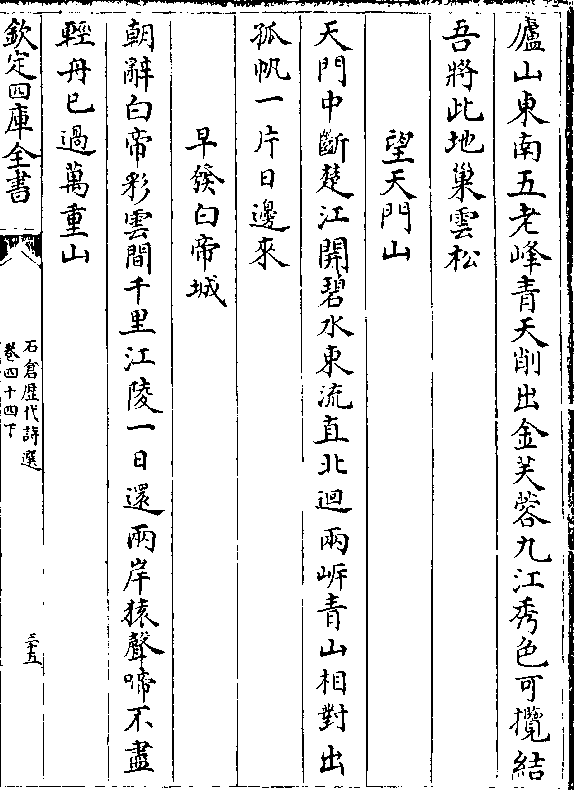 廬山東南五老峰青天削出金芙蓉九江秀色可攬結
吾將此地巢雲松
望天門山
天門中斷楚江開碧水東流直北迴兩岸青山相對出
孤帆一片日邊來
早發白帝城
朝辭白帝彩雲間千里江陵一日還兩岸猿聲啼不盡
輕舟已過萬重山
欽定四庫全書
石倉歷代詩選
卷四十四下
三十五